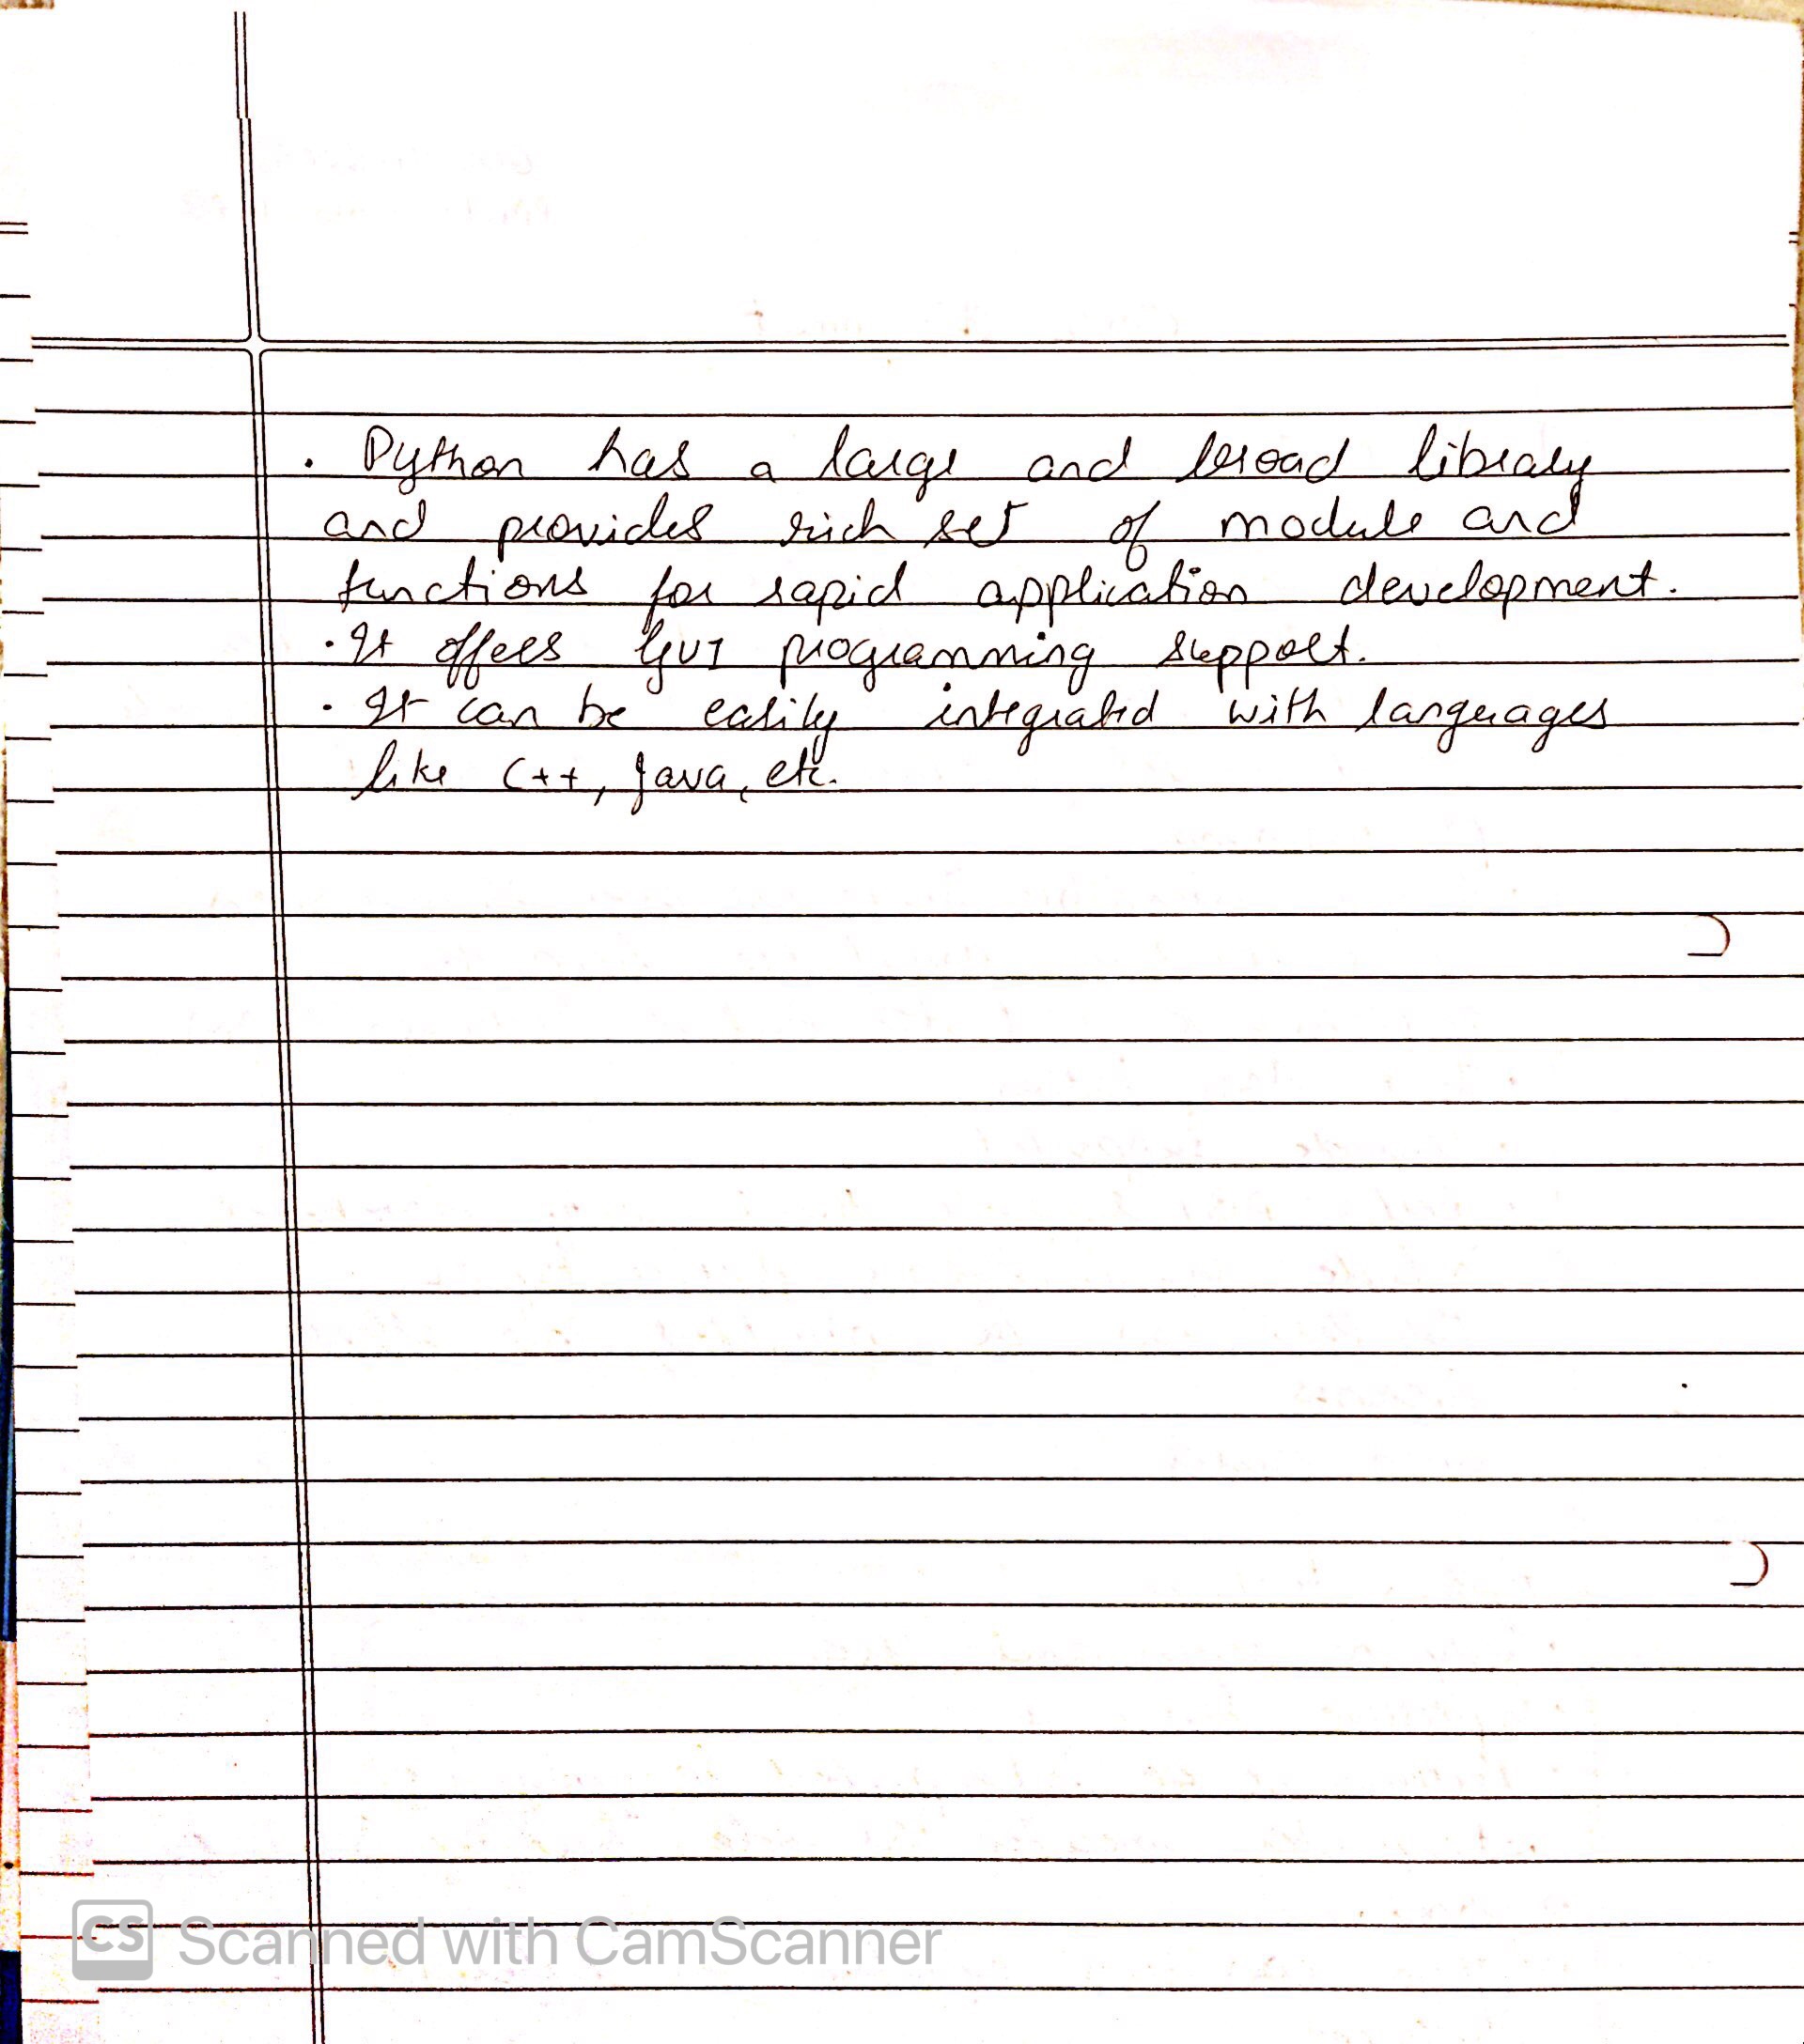 · Python has a large and broad library
and provides rich set of module and
functions for rapid application development.
· It offers GUI programming support.
· It can be easily integrated with languages
like C++, Java, etc.
CS Scanned with CamScanner